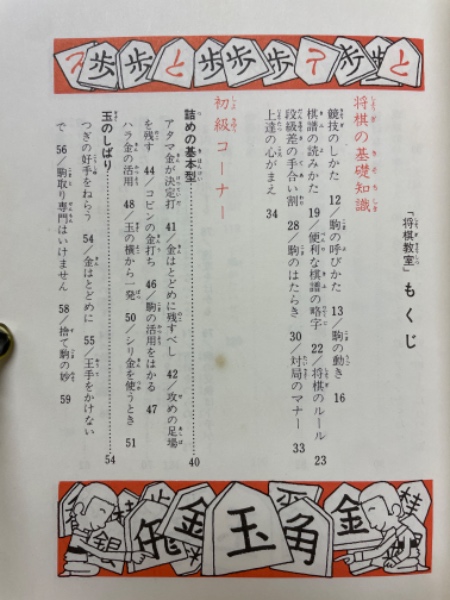 歩歩と歩歩歩て歩歩と
「将棋教室」もくじ
将棋の基礎知識
競技のしかた 12/駒の呼びかた 13/駒の動き 16
棋譜の読みかた 19/便利な棋譜の略字 22/将棋のルール 23
段級差の手合い割 28/駒のはたらき 30/対局のマナー 33
上達の心がまえ 34
初級コーナー
詰めの基本型……40
アタマ金が決定打 41/金はとどめに残すべし 42/攻めの足場
を残す 44/コビンの金打ち 46/駒の活用をはかる 47
ハラ金の活用 48/玉の横から一発 50/シリ金を使うとき 51
玉のしばり……54
つぎの好手をねらう 54/金はとどめに 55/王手をかけない
で 56/駒取り専門はいけません 58/捨て駒の妙 59
銀 桂 歩 飛 金 玉 角 金 桂